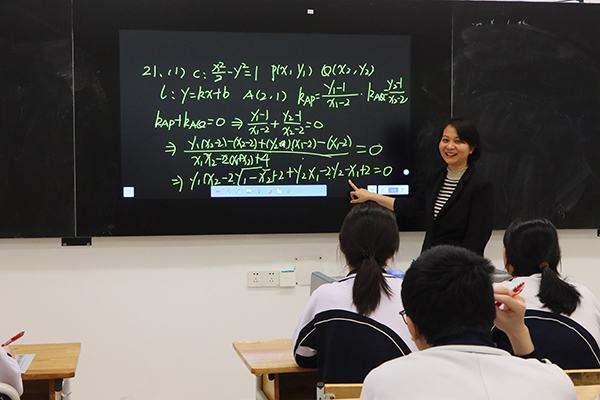 21. (1) C: x²/2 - y² = 1 P(x₁, y₁) Q(x₂, y₂)
l: y = kx+b A(2, 1) k_AP = (y₁-1)/(x₁-2) · k_AQ = (y₂-1)/(x₂-2)
k_AP + k_AQ = 0 ⇒ (y₁-1)/(x₁-2) + (y₂-1)/(x₂-2) = 0
⇒ (y₁(x₂-2) - (x₂-2) + (y₂)(x₁-2) - (x₁-2))/(x₁x₂ - 2(x₁+x₂) + 4) = 0
⇒ y₁x₂ - 2y₁ - x₂ + 2 + y₂x₁ - 2y₂ - x₁ + 2 = 0